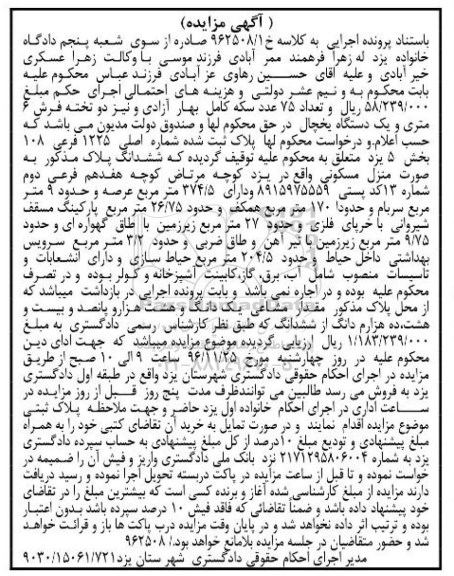 ( آگهی مزایده)
باستناد پرونده اجرایی به کلاسه خ۹۶۲۵۰۸/۱ صادره از سوی شعبه پنجم دادگاه
خانواده یزد له زهرا فرهمند ممر آبادی فرزند موسی با وکالت زهرا عسکری
خیر آبادی و علیه آقای حسین رهاوی عز آبادی فرزند عباس محکوم علیه
بابت محکوم به و نیم عشر دولتی و هزینه های احتمالی اجرای حکم مبلغ
۵۸/۲۳۹/۰۰۰ ریال و تعداد ۷۵ عدد سکه کامل بهار آزادی و نیز دو تخته فرش ۶
متری و یک دستگاه یخچال در حق محکوم لها و صندوق دولت مدیون می باشد که
حسب اعلام و درخواست محکوم لها پلاک ثبت شده شماره اصلی ۱۲۲۵ فرعی ۱۰۸
بخش ۵ یزد متعلق به محکوم علیه توقیف گردیده که ششدانگ پلاک مذکور به
صورت منزل مسکونی واقع در یزد کوچه مرتاض کوچه هفدهم فرعی دوم
شماره ۱۳کد پستی ۸۹۱۵۹۷۵۵۵۹ ودارای ۳۷۴/۵ متر مربع عرصه و حدود ۹ متر
مربع سربام و حدودا ۱۷۰ متر مربع همکف و حدود ۲۶/۷۵ متر مربع پارکینگ مسقف
شیروانی با خرپای فلزی و حدود ۲۷ متر مربع زیرزمین با طاق گهواره ای و حدود
۹/۷۵ متر مربع زیرزمین با تیر آهن و طاق ضربی و حدود ۳/۲ متر مربع سرویس
بهداشتی داخل حیاط و حدود ۲۰۴/۵ متر مربع حیاط سازی و دارای انشعابات و
تاسیسات منصوب شامل آب، برق، گاز، کابینت آشپزخانه و کولر بوده و در تصرف
محکوم علیه بوده و در اجاره نمی باشد و بابت پرونده اجرایی در بازداشت میباشد که
از محل پلاک مذکور مقدار مشاعی یک دانگ و هشت هزارو پانصد و بیست و
هشت،ده هزارم دانگ از ششدانگ که طبق نظر کارشناس رسمی دادگستری به مبلغ
۱/۱۸۳/۲۳۹/۰۰۰ ریال ارزیابی گردیده موضوع مزایده میباشد که جهت ادای دین
محکوم علیه در روز چهارشنبه مورخ ۹۶/۱۱/۲۵ ساعت ۹ الی ۱۰ صبح از طریق
مزایده در اجرای احکام حقوقی دادگستری شهرستان یزد واقع در طبقه اول دادگستری
یزد به فروش می رسد طالبین می توانندظرف مدت پنج روز قبل از روز مزایده در
ساعت اداری در اجرای احکام خانواده اول یزد حاضر و جهت ملاحظه پلاک ثبتی
موضوع مزایده اقدام نمایند و در صورت تمایل به خرید آن تقاضای کتبی خود را به همراه
مبلغ پیشنهادی و تودیع مبلغ ۱۰درصد از کل مبلغ پیشنهادی به حساب سپرده دادگستری
یزد به شماره ۲۱۷۱۲۹۵۸۰۶۰۰۴ نزد بانک ملی دادگستری واریز و فیش آن را ضمیمه در
خواست نموده و تا قبل از ساعت مزایده در پاکت دربسته تحویل اجرا نموده و رسید دریافت
دارند مزایده از مبلغ کارشناسی شده آغاز و برنده کسی است که بیشترین مبلغ را در تقاضای
خود پیشنهاد داده باشد و ضمنا تقاضائی که فاقد فیش ۱۰ درصد سپرده باشد بدون اعتبار
بوده و ترتیب اثر داده نخواهد شد و در پایان وقت مزایده درب پاکت ها باز و قرائت خواهد
شد و حضور متقاضیان در جلسه مزایده بلامانع خواهد بود./ ۹۶۲۵۰۸
مدیر اجرای احکام حقوقی دادگستری شهر ستان یزد۹۰۳۰/۱۵۰۶۱/۷۲۱